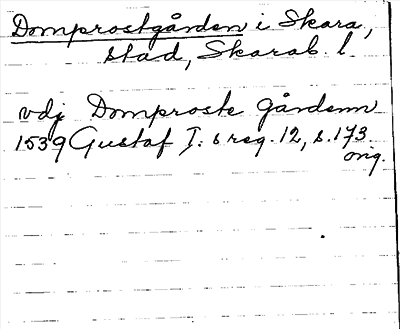 Domprostgården i Skara,
stad, Skarab. l.
vdj Domproste gårdenn
1539 Gustaf I:s reg. 12, s. 173.
orig.